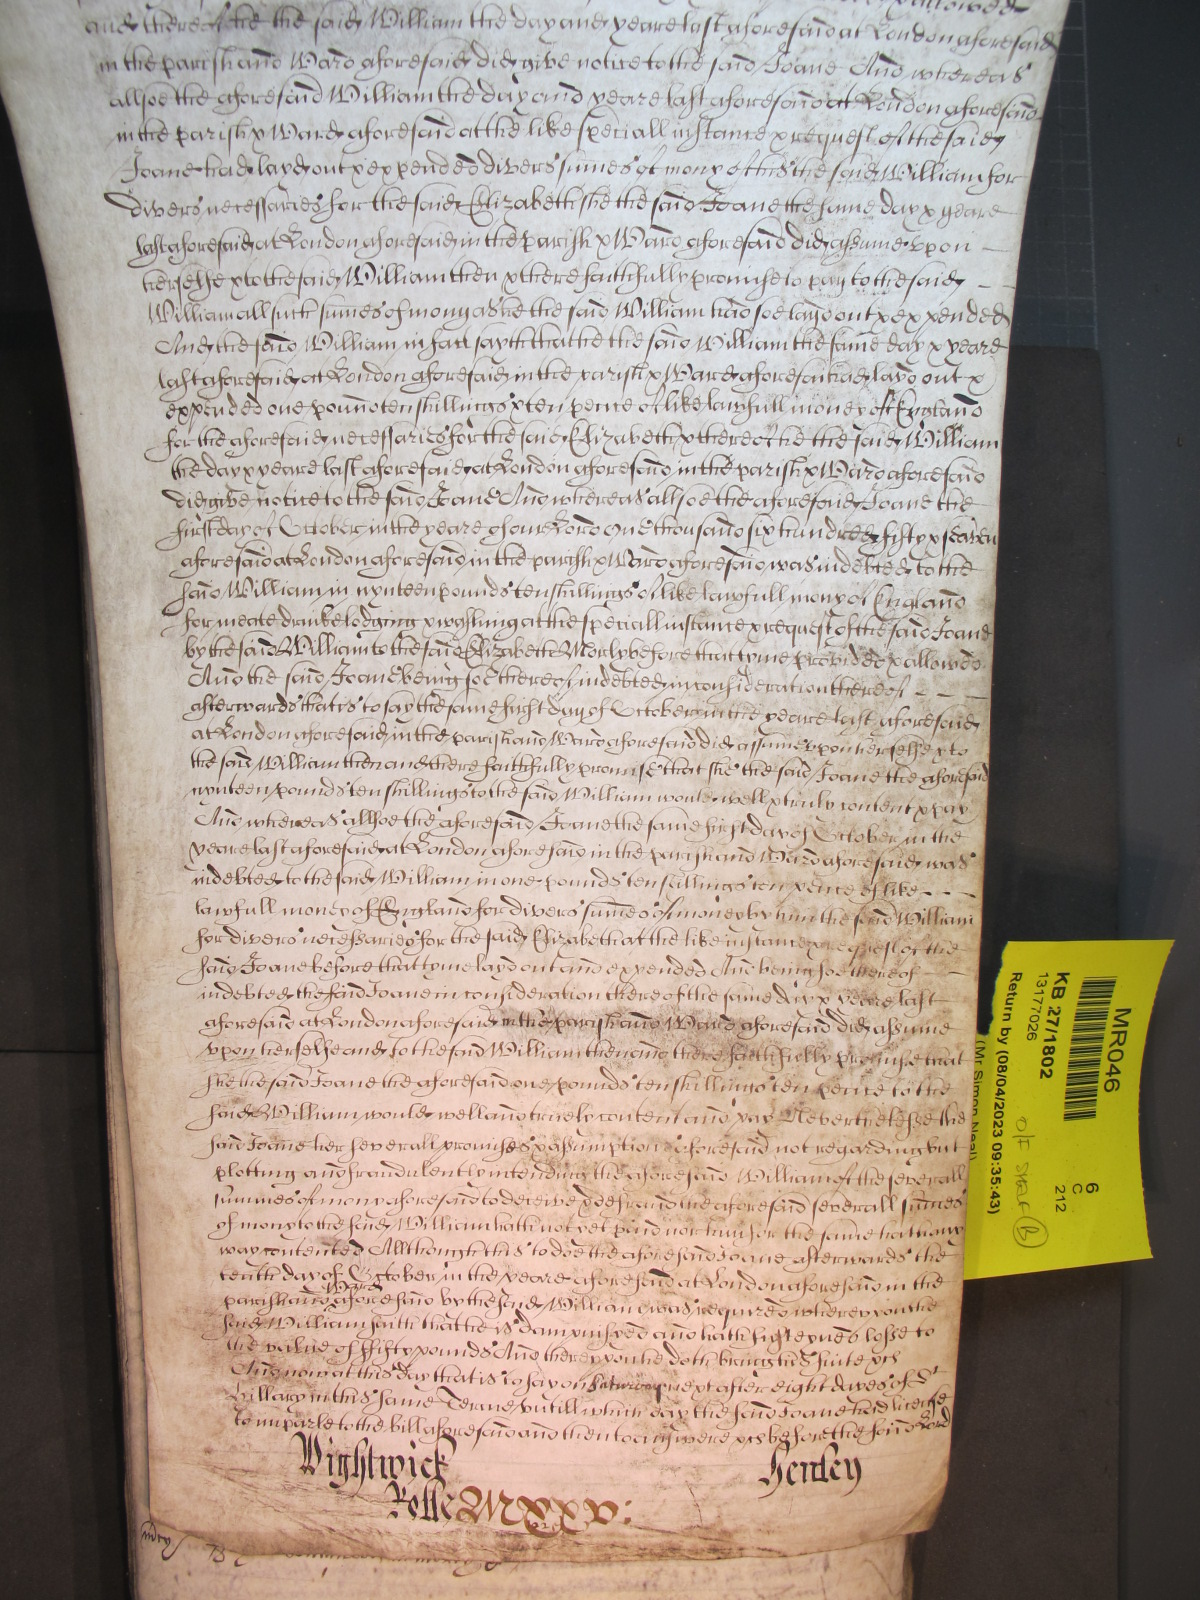 and thereof he the said William the day and yeare last aforesaid at London aforesaid
in the parish and Ward aforesaid did give notice to the said Joane And whereas
allsoe the aforesaid William the day and yeare last aforesaid at London aforesaid
in the parish x Ward aforesaid at the like speciall instance x request of the said
Joane had layd out x expended divers sumes of mony of his the said William for
divers necessaries for the said Elizabeth she the said Joane the same day x yeare
last aforesaid at London aforesaid in the parish x Ward aforesaid did assume upon
herselfe x to the said William then x there faithfully promise to pay to the said
William all such sumes of mony as he the said William had soe layd out x expended
And the said William in fact sayth that he the said William the same day x yeare
last aforesaid at London aforesaid in the parish x Ward aforesaid had layd out x
expended one pound ten shillings x ten pence of like lawfull money of England
for the aforesaid necessaries for the said Elizabeth x thereof he the said William
the day x yeare last aforesaid at London aforesaid in the parish x Ward aforesaid
did give notice to the said Joane And whereas allsoe the aforesaid Joane the
first day of October in the yeare of our Lord one thousand six hundred fifty x seaven
aforesaid at London aforesaid in the parish x Ward aforesaid was indebted to the
said William in nynteen pounds ten shillings of like lawfull mony of England
for meate drinke lodging x washing at the speciall instance x request of the said Joane
by the said William to the said Elizabeth Morly before that tyme provided x allowed
And the said Joane being soe thereof indebted in consideration thereof
afterwards that is to say the same first day of October in the yeare last aforesaid
at London aforesaid in the parish and Ward aforesaid did assume upon herselfe x to
the said William then and there faithfully promise that she the said Joane the aforesaid
nynteen pounds ten shillings to the said William would well x truly content x pay
And whereas allsoe the aforesaid Joane the same first day of October in the
yeare last aforesaid at London aforesaid in the parish and Ward aforesaid was
indebted to the said William in one pounds ten shillings ten pence of like
lawfull money of England for divers sumes of money by him the said William
for divers necessaries for the said Elizabeth at the like instance x request of the
said Joane before that tyme layd out and expended And being soe thereof
indebted the said Joane in consideration thereof the same day x yeare last
aforesaid at London aforesaid in the parish and Ward aforesaid did assume
upon herselfe and to the said William then and there faithfully promise that
she the said Joane the aforesaid one pounds ten shillings ten pence to the
said William would well and truely content and pay Neverthelesse the
said Joane her severall promises x assumptions aforesaid not regarding but
plotting and fraudulently intending the aforesaid William of the severall
summes of mony aforesaid to deceive x defraud the aforesaid severall summes
of mony to the said William hath not yet paid nor him for the same hath any
way contented Allthough this to doe the aforesaid Joane afterwards the
tenth day of October in the yeare aforesaid at London aforesaid in the
parish and Ward aforesaid by the said William was required whereupon the
said William saith that he is dampnifyed and hath susteyned losse to
the value of fifty pounds And thereupon he doth bring his suite xch
And now at this day that is to say on Saturday next after eight dayes of St
Hillary in this same Terme untill which day the said Joane had license
to imparle to the bill aforesaid and then to answere xch before the said Lord
Wightwick Henley
Rolle MXXV:
MR046
KB 27/1802
13177026
Return by (08/04/2023 09:35:43)
(Mr Simon Neal)
6
C
212
B